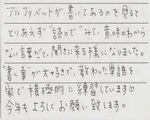 アルファベットが書いてあるのを見ると、
とりあえず"読んで"みて、意味のわから
ない言葉だと、聞きに来る様になりました。
"書く事"が大好きで、教わった単語を
家で積極的に練習しています。
今年もよろしくお願い致します。